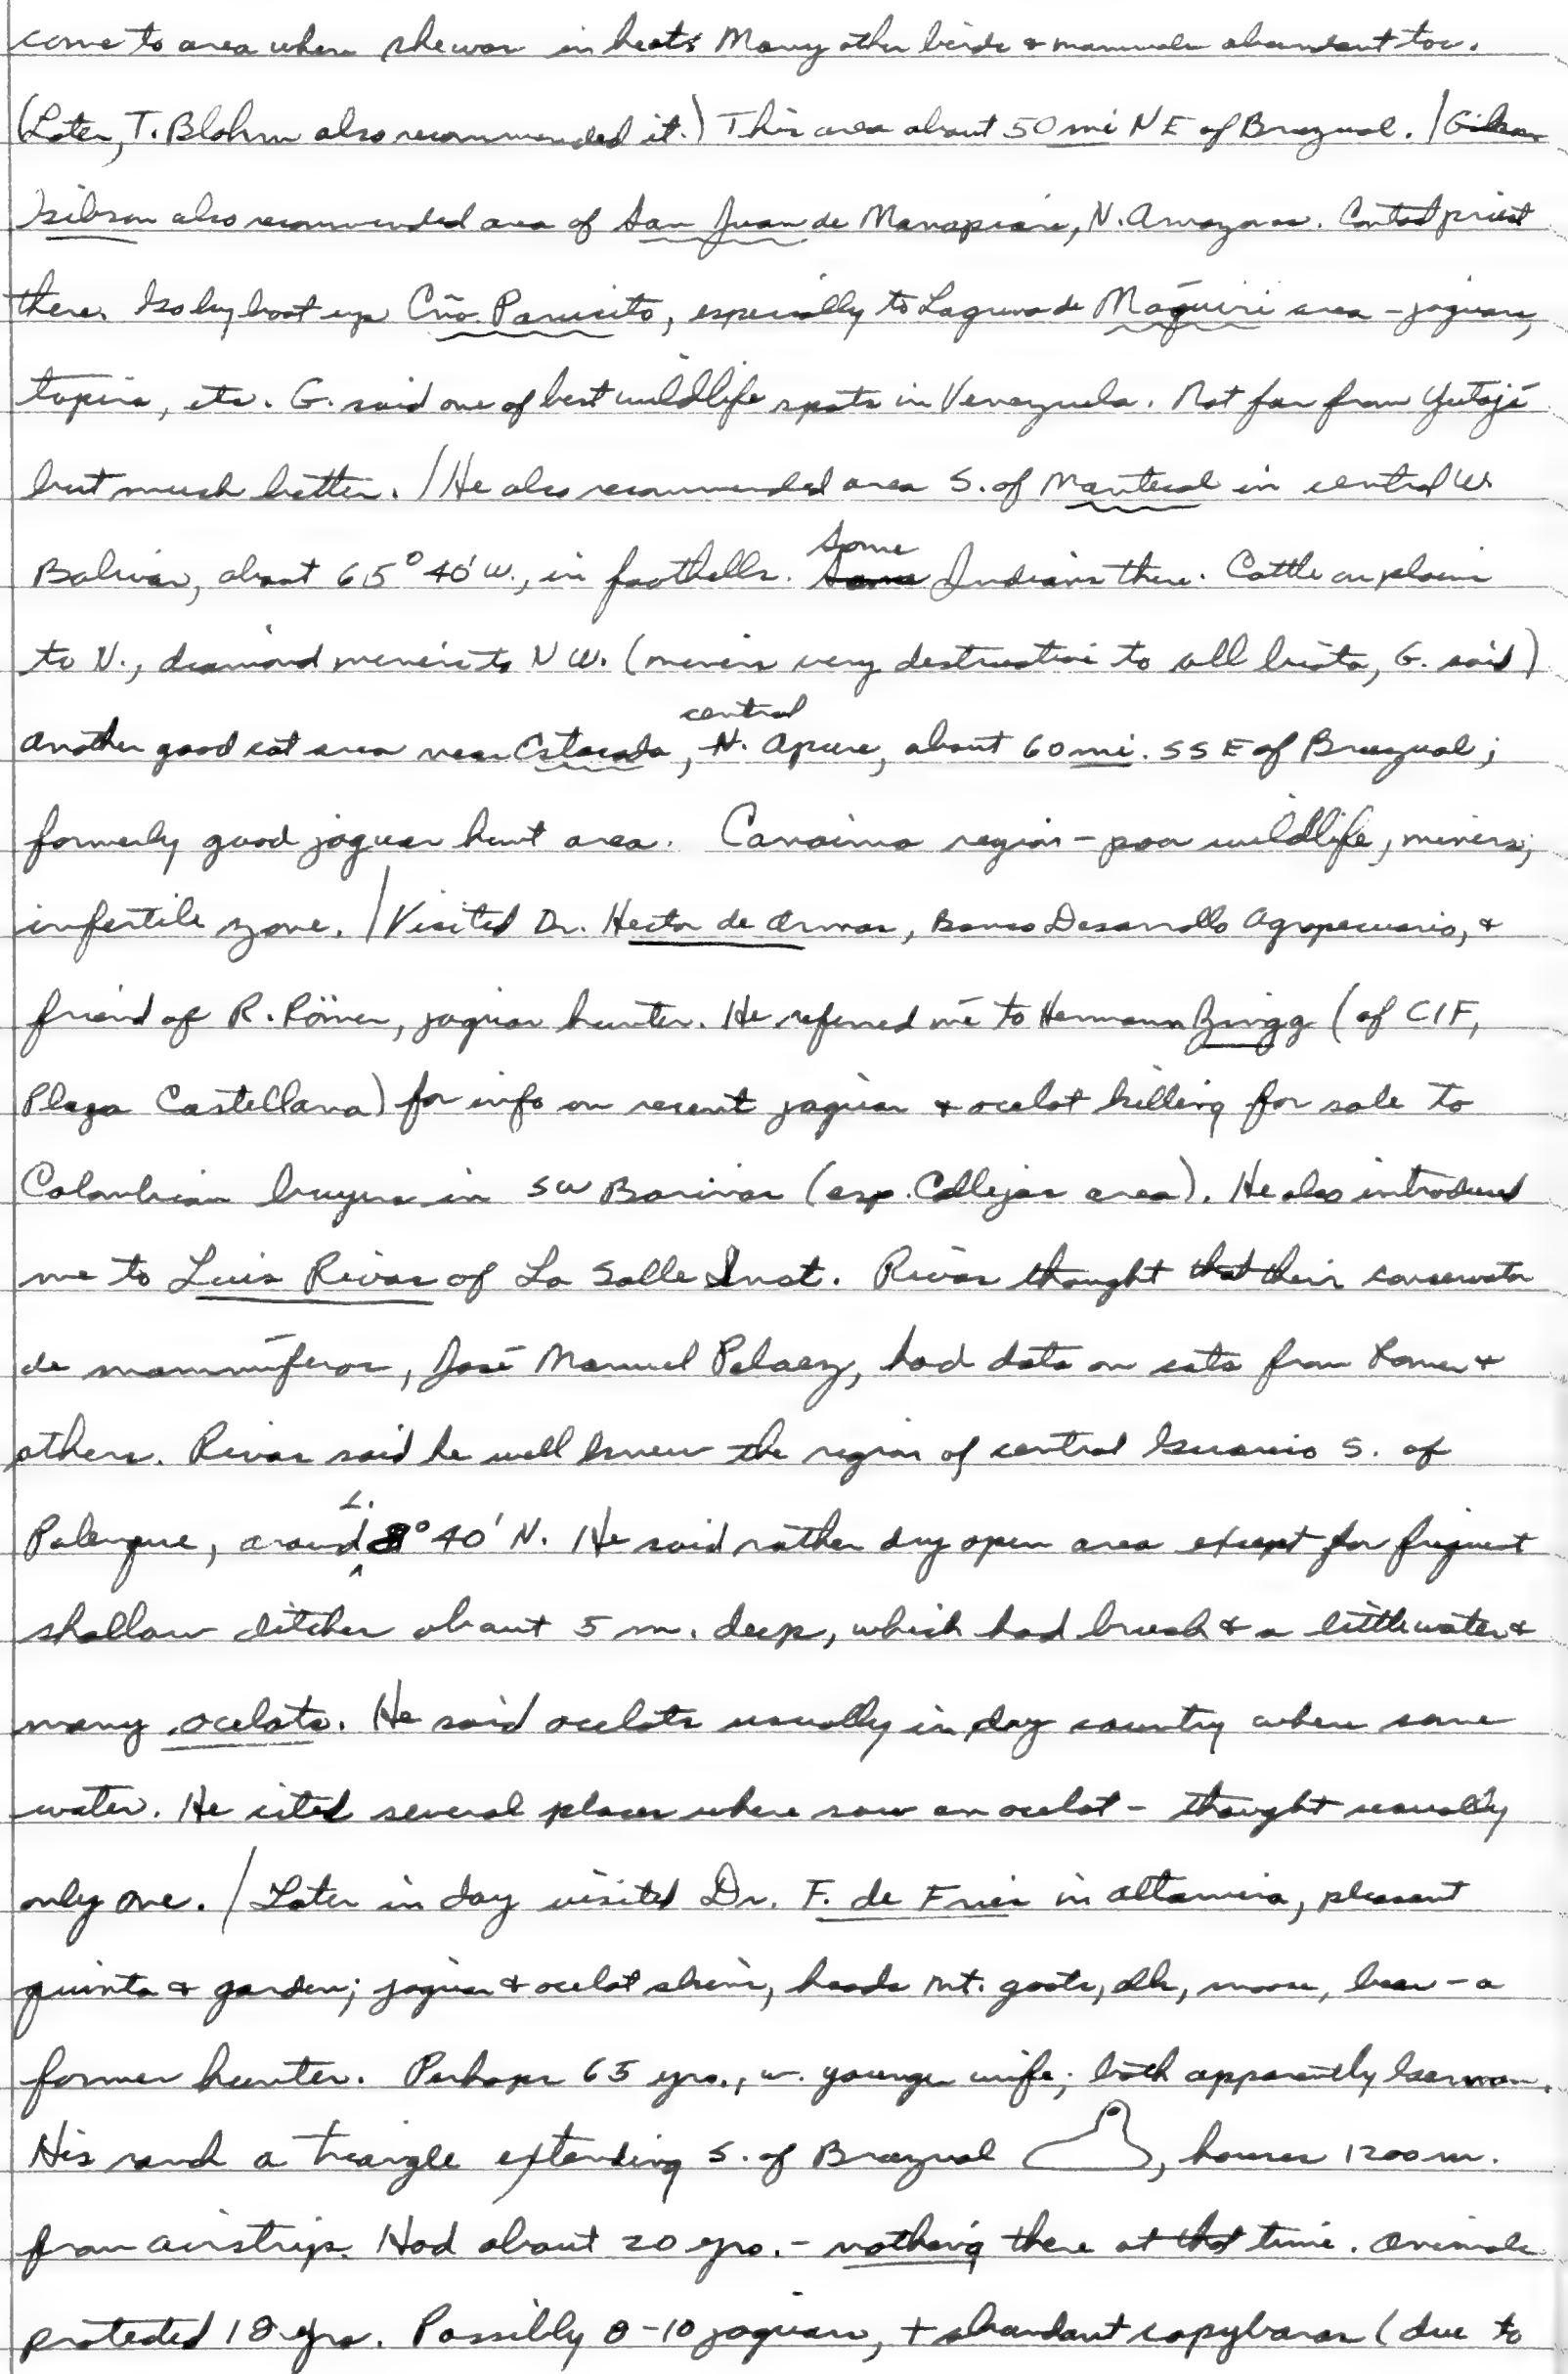 come to area when she was in heat. Many other birds & mammals abundant too.
(Later, T. Blohm also recommended it.) This area about 50 mi NE of Bruzual. /
Gibson also recommended area of San Juan de Manapiare, N. Amazonas. Contact priest
there. Go by boat up Cño. Parucito, especially to Laguna de Maguiri area - jaguars,
tapirs, etc. G. said one of best wildlife spots in Venezuela. Not far from Yutajé
but much better. / He also recommended area S. of Manteco in central W.
Bolivar, about 65° 40' W., in foothills. Some Indians there. Cattle on plains
to N., diamond miners to NW. (miners very destructive to all biota, G. said)
Another good cat area near Estacada, central Apure, about 60 mi. SSE of Bruzual;
formerly good jaguar hunt area. Canaima region - poor wildlife, miners;
infertile zone. / Visited Dr. Hector de Armas, Banco Desarrollo Agropecuario, &
friend of R. Römer, jaguar hunter. He referred me to Hermann Zingg (of CIF,
Plaza Castellana) for info on recent jaguar & ocelot killing for sale to
Colombian buyers in SW Barinas (esp. Callejas area). He also introduced
me to Luis Rivas of La Salle Inst. Rivas thought that their conservator
de mammíferos, José Manuel Pelaez, had data on cats from Romer &
others. Rivas said he well knew the region of central Guarico S. of
Palenque, around L. 8° 40' N. He said rather dry open area except for frequent
shallow ditches about 5 m. deep, which had brush & a little water &
many ocelots. He said ocelots usually in dry country where some
water. He cited several places where saw an ocelot - thought usually
only one. / Later in day visited Dr. F. de Fries in Altamira, pleasant
quinta & garden; jaguar & ocelot skins, heads mt. goats, elk, moose, bear - a
former hunter. Perhaps 65 yrs., w. younger wife; both apparently German.
His ranch a triangle extending S. of Bruzual, houses 1200 m.
from airstrip. Had about 20 yrs. - nothing there at that time. Animals
protected 18 yrs. Possibly 8-10 jaguars, + abundant capybaras (due to